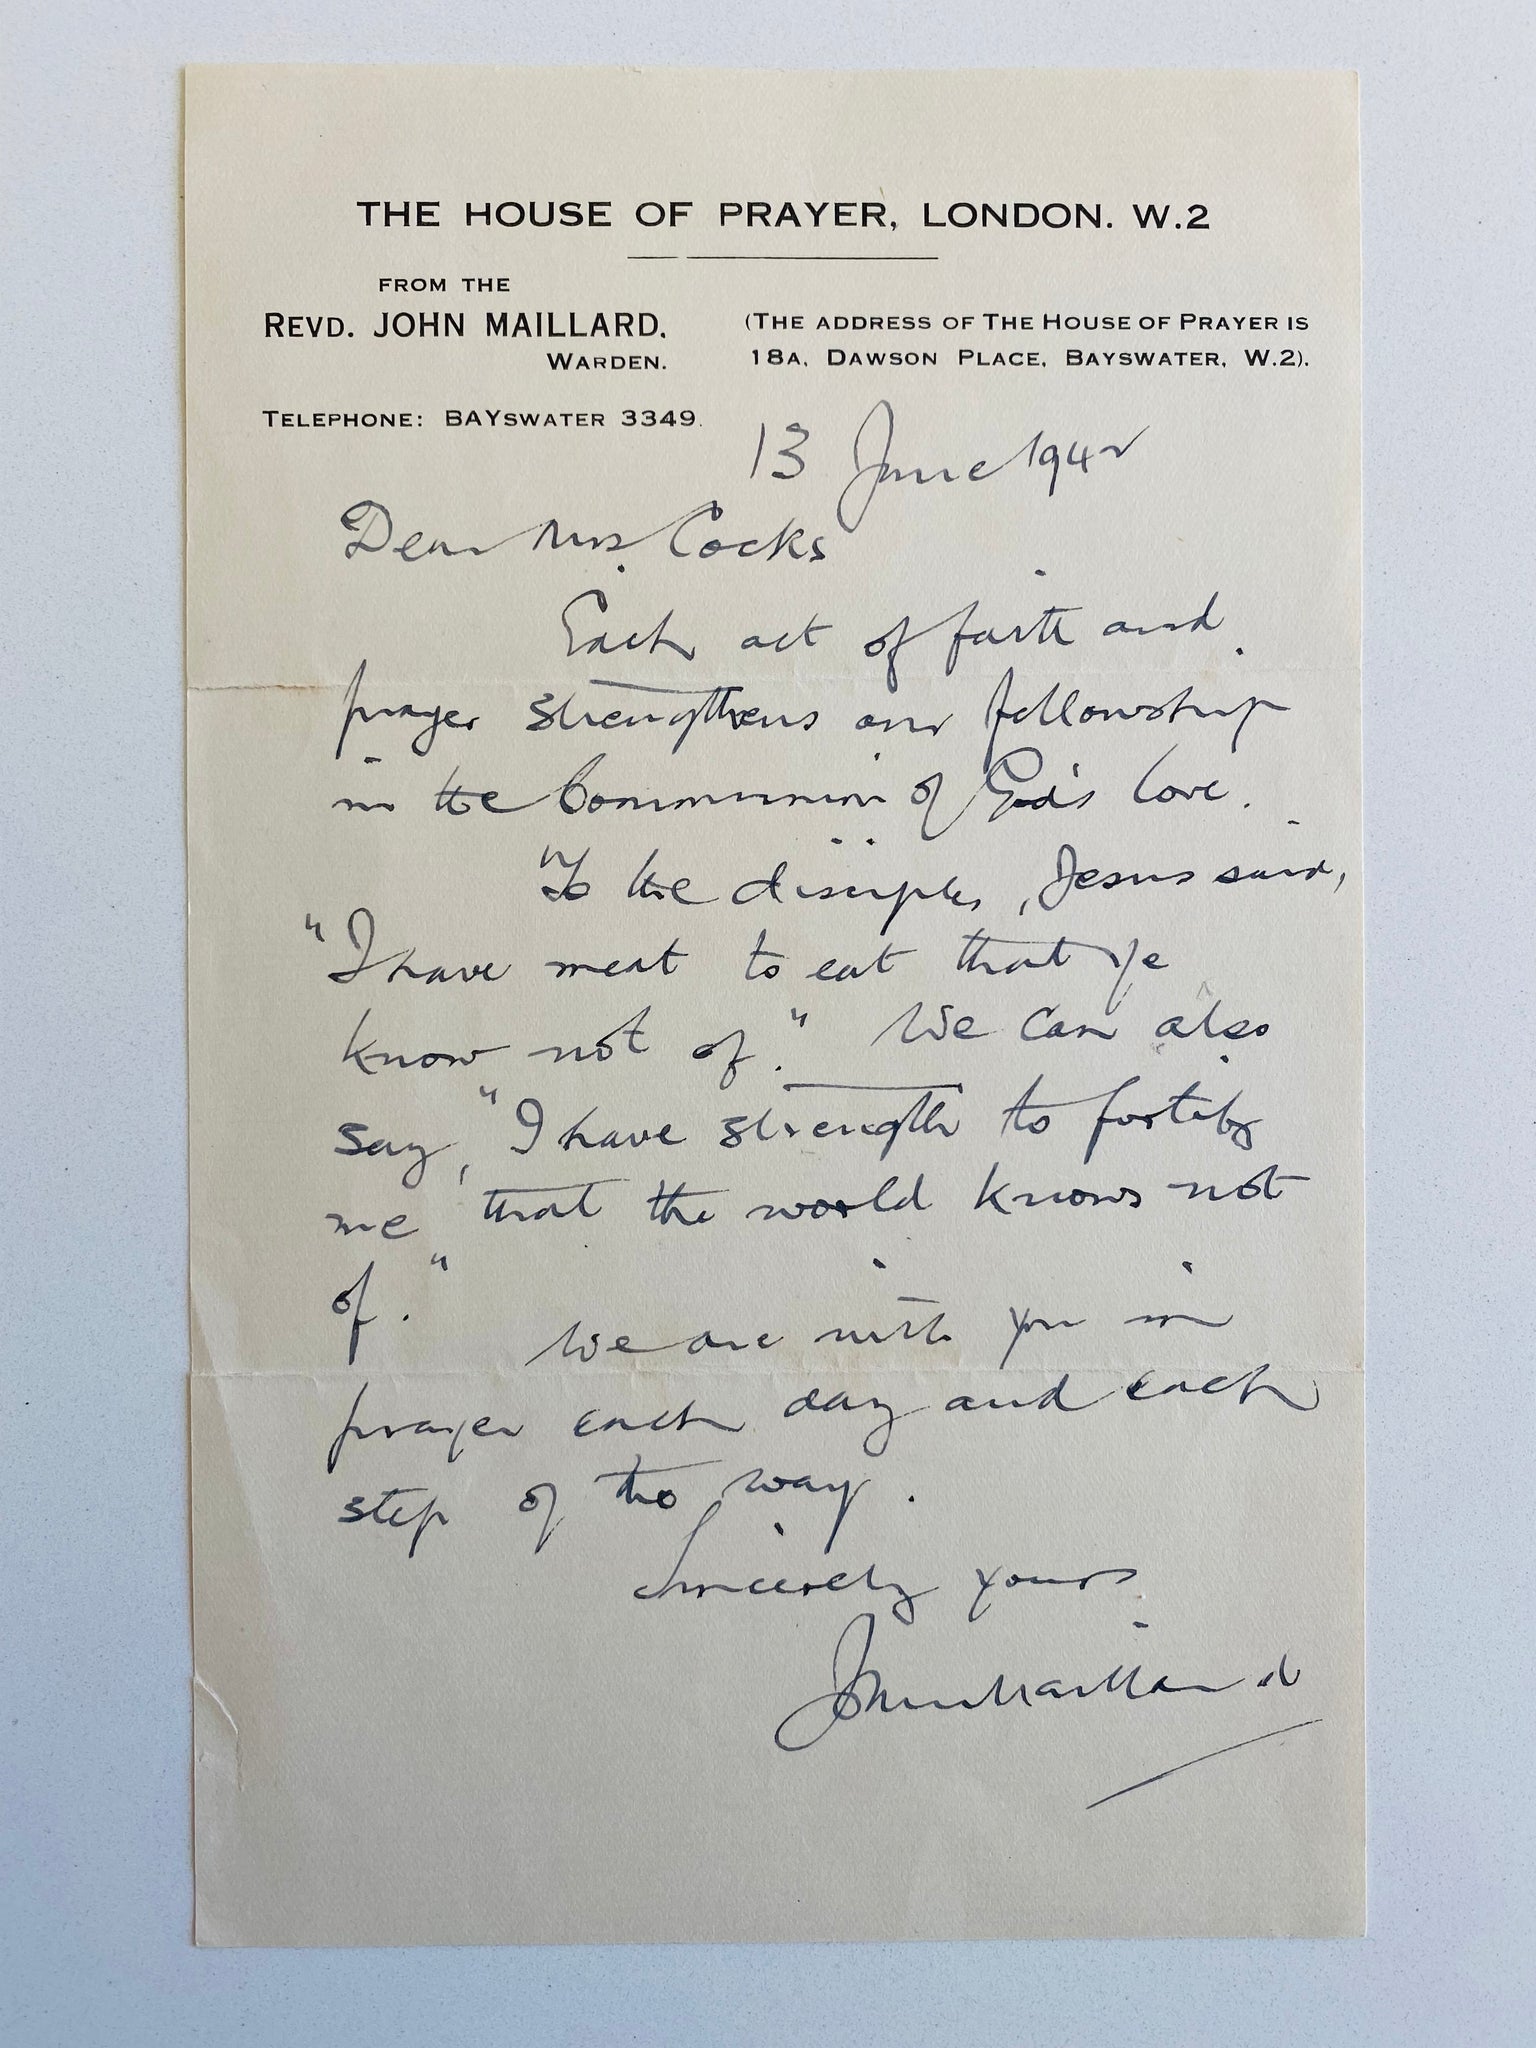 THE HOUSE OF PRAYER, LONDON. W.2
FROM THE
REVD. JOHN MAILLARD,
WARDEN.
(THE ADDRESS OF THE HOUSE OF PRAYER IS
18A, DAWSON PLACE, BAYSWATER, W.2).
TELEPHONE: BAYSWATER 3349.
13 June 1942
Dear Mrs Cocks
Each act of faith and
prayer strengthens our fellowship
in the Communion of God's love.
To the disciples, Jesus said,
"I have meat to eat that ye
know not of." We can also
say, "I have strength to fortify
me that the world knows not
of."
We are with you in
prayer each day and each
step of the way.
Sincerely yours
John Maillard